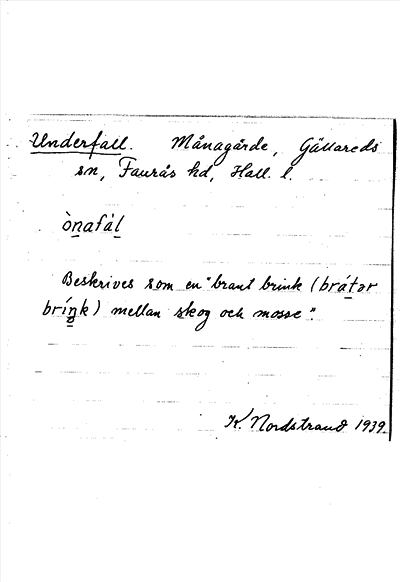 Underfall. Månagärde, Gällareds
sn, Faurås hd, Hall. l.
ònafál
Beskrives som en "brant brink (brátər
bríŋk) mellan skog och mosse".
K. Nordstrand 1939.